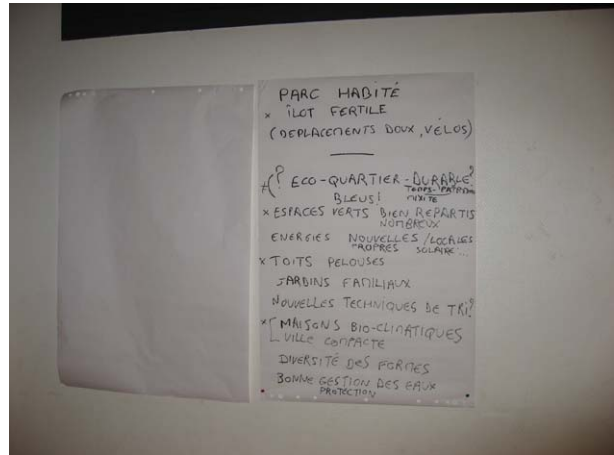 PARC HABITÉ
× ÎLOT FERTILE
(DEPLACEMENTS DOUX, VÉLOS)
? ECO-QUARTIER - DURABLE?
BLEUS!
MIXITÉ
× ESPACES VERTS BIEN REPARTIS
NOMBREUX
ENERGIES NOUVELLES / LOCALES
PROPRES SOLAIRE...
× TOITS PELOUSES
JARDINS FAMILIAUX
NOUVELLES TECHNIQUES DE TRI?
× [ MAISONS BIO-CLIMATIQUES
VILLE COMPACTE
DIVERSITÉ DES FORMES
BONNE GESTION DES EAUX
PROTECTION